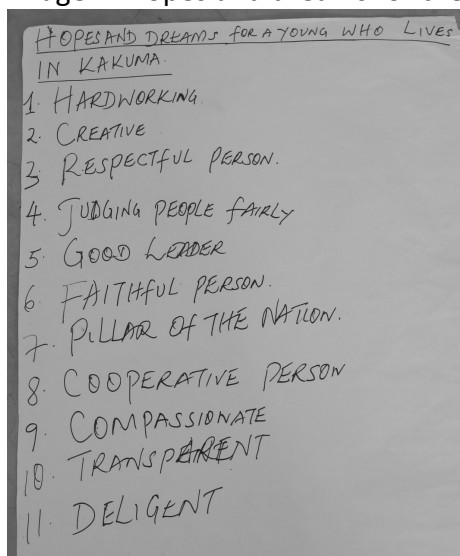 HOPES AND DREAMS FOR A YOUNG WHO LIVES
IN KAKUMA.
1. HARDWORKING.
2. CREATIVE
3. RESPECTFUL PERSON.
4. JUDGING PEOPLE FAIRLY
5. GOOD LEADER
6. FAITHFUL PERSON.
7. PILLAR OF THE NATION.
8. COOPERATIVE PERSON
9. COMPASSIONATE
10. TRANSPARENT
11. DELIGENT